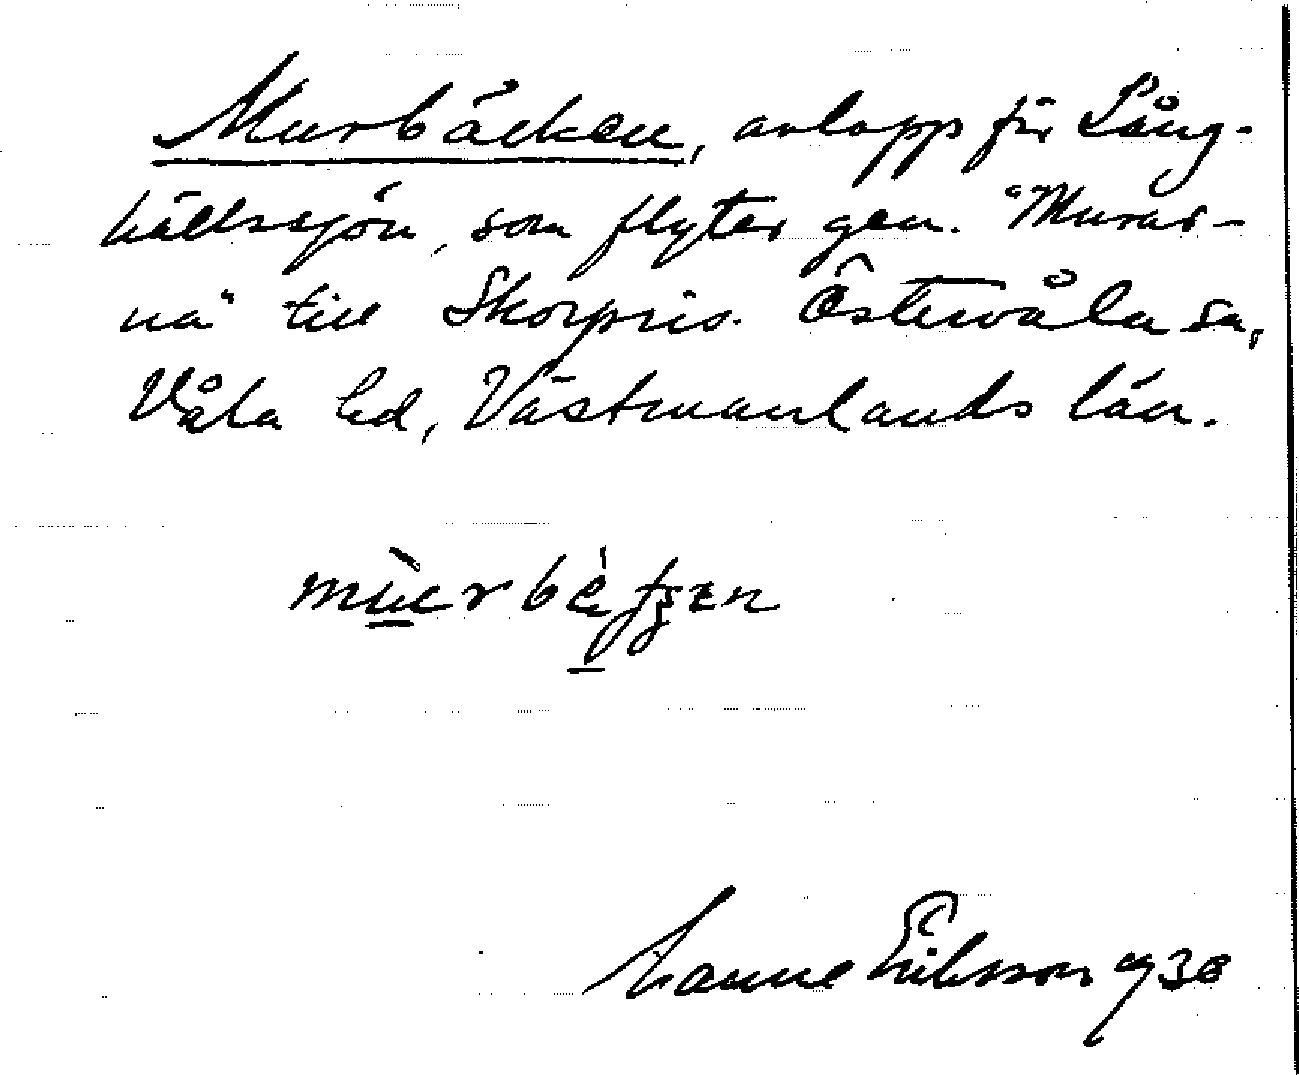 Murbäcken, avlopp för Lång-
hällssjön, som flyter gen. "Murar-
na" till Skorpris. Östervåla sn,
Våla hd, Västmanlands län.
Manne Eriksson 1930